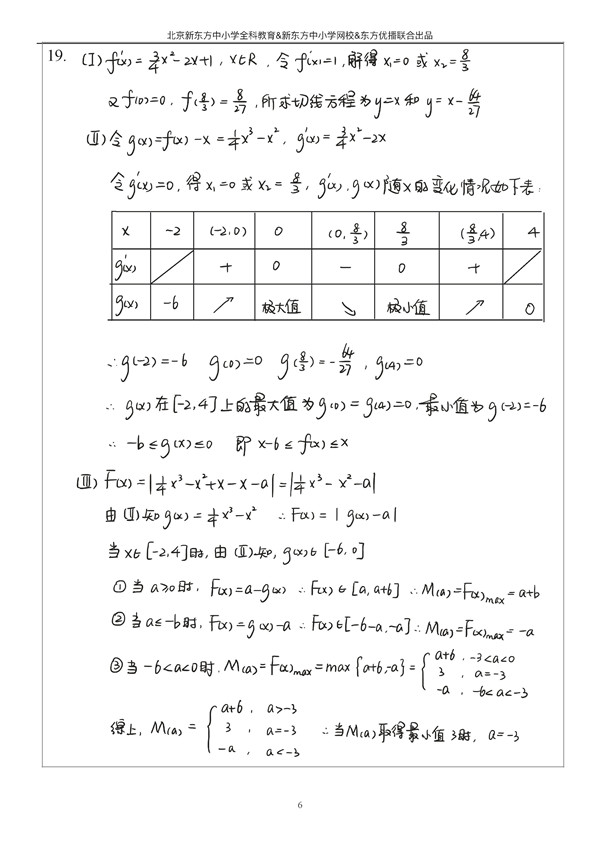 北京新东方中小学全科教育&新东方中小学网校&东方优播联合出品
19. (Ⅰ) f'(x) = 3/4x²-2x+1, x∈R, 令 f'(x)=1, 解得 x₁=0 或 x₂=8/3
又 f(0)=0, f(8/3)=8/27, 所求切线方程为 y=x 和 y=x-64/27
(Ⅱ) 令 g(x)=f(x)-x=1/4x³-x², g'(x)=3/4x²-2x
令 g'(x)=0, 得 x₁=0 或 x₂=8/3, g'(x), g(x) 随 x 的变化情况如下表:
x -2 (-2,0) 0 (0,8/3) 8/3 (8/3,4) 4
g'(x) + 0 - 0 +
g(x) -6 ↗ 极大值 ↘ 极小值 ↗ 0
∴ g(-2)=-6 g(0)=0 g(8/3)=-64/27, g(4)=0
∴ g(x) 在[-2,4]上的最大值为 g(0)=g(4)=0, 最小值为 g(-2)=-6
∴ -6≤g(x)≤0 即 x-6≤f(x)≤x
(Ⅲ) F(x)=|1/4x³-x²+x-x-a|=|1/4x³-x²-a|
由(Ⅱ)知 g(x)=1/4x³-x² ∴ F(x)=|g(x)-a|
当 x∈[-2,4]时, 由(Ⅱ)知, g(x)∈[-6,0]
① 当 a≥0 时, F(x)=a-g(x) ∴ F(x)∈[a,a+6] ∴ M(a)=F(x)max=a+6
② 当 a≤-6 时, F(x)=g(x)-a ∴ F(x)∈[-6-a,-a] ∴ M(a)=F(x)max=-a
③ 当 -6<a<0 时, M(a)=F(x)max=max{a+6,-a}={a+6, -3<a<0
3, a=-3
-a, -6<a<-3
综上, M(a)={a+6, a>-3
3, a=-3 ∴ 当 M(a) 取得最小值 3 时, a=-3
-a, a<-3
6